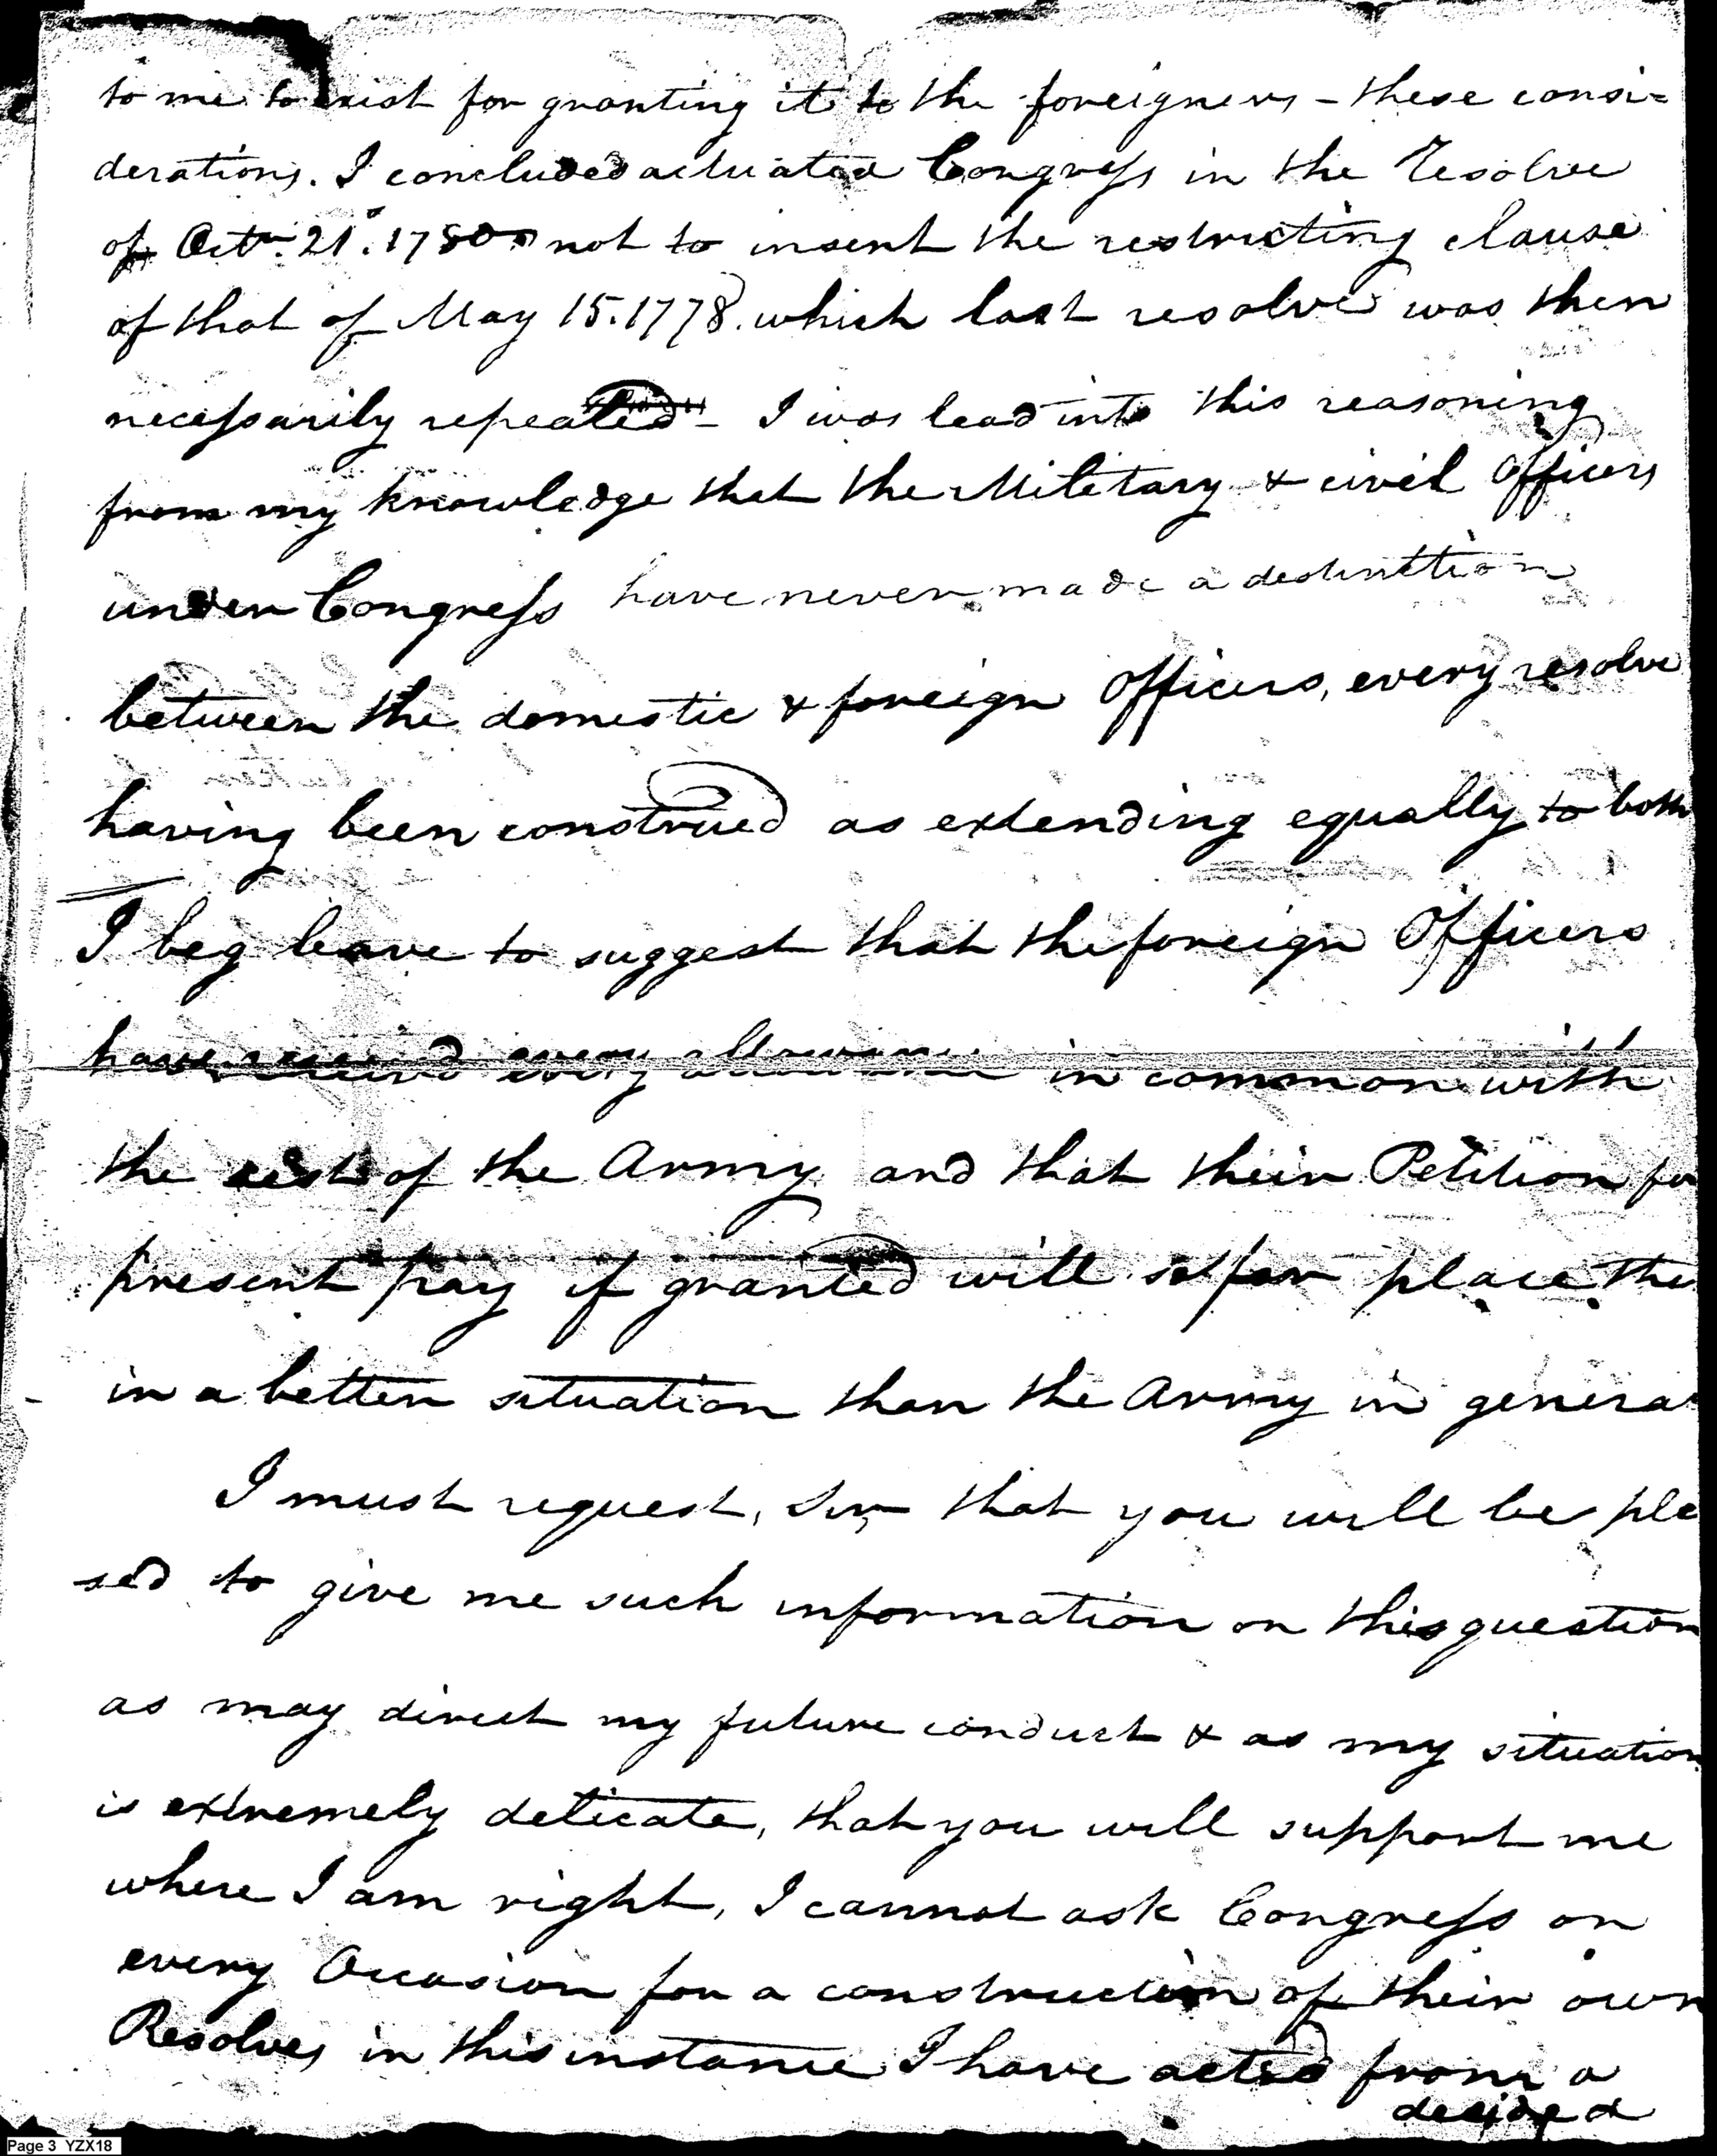 to me to exist for granting it to the foreigners - these consi=
derations. I concluded actuated Congress in the Resolve
of Octr. 21. 1780 not to insert the restricting clause
of that of May 15. 1778. which last resolve was then
necessarily repeated - I was lead into this reasoning
from my knowledge that the Military & civil Officers
under Congress have never made a destinction
between the domestic & foreign Officers, every resolve
having been construed as extending equally to both
I beg leave to suggest that the foreign Officers
have received every allowance in common with
the rest of the Army and that their Petition for
present pay if granted will so far place the
in a better situation than the Army in genera
I must request, Sir, that you will be plea
sed to give me such information on this question
as may direct my future conduct & as my situation
is extremely delicate, that you will support me
where I am right, I cannot ask Congress on
every Occasion for a construction of their own
Resolves in this instance I have acted from a
decided
Page 3 YZX18